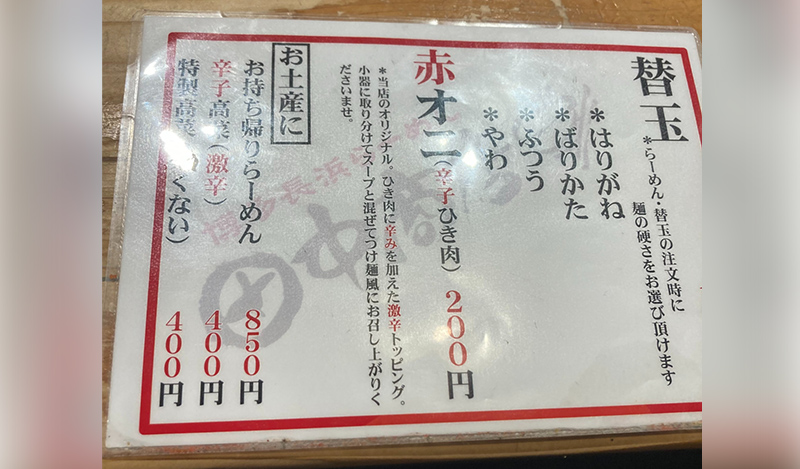 替玉
＊らーめん・替玉の注文時に
麺の硬さをお選び頂けます
＊はりがね
＊ばりかた
＊ふつう
＊やわ
赤オニ(辛子ひき肉) 200円
＊当店のオリジナル。ひき肉に辛みを加えた激辛トッピング。
小器に取り分けてスープと混ぜてつけ麺風にお召し上がりく
ださいませ。
お土産に
お持ち帰りらーめん 850円
辛子高菜(激辛) 400円
特製高菜 くない) 400円
博多長浜らーめん
田中商店